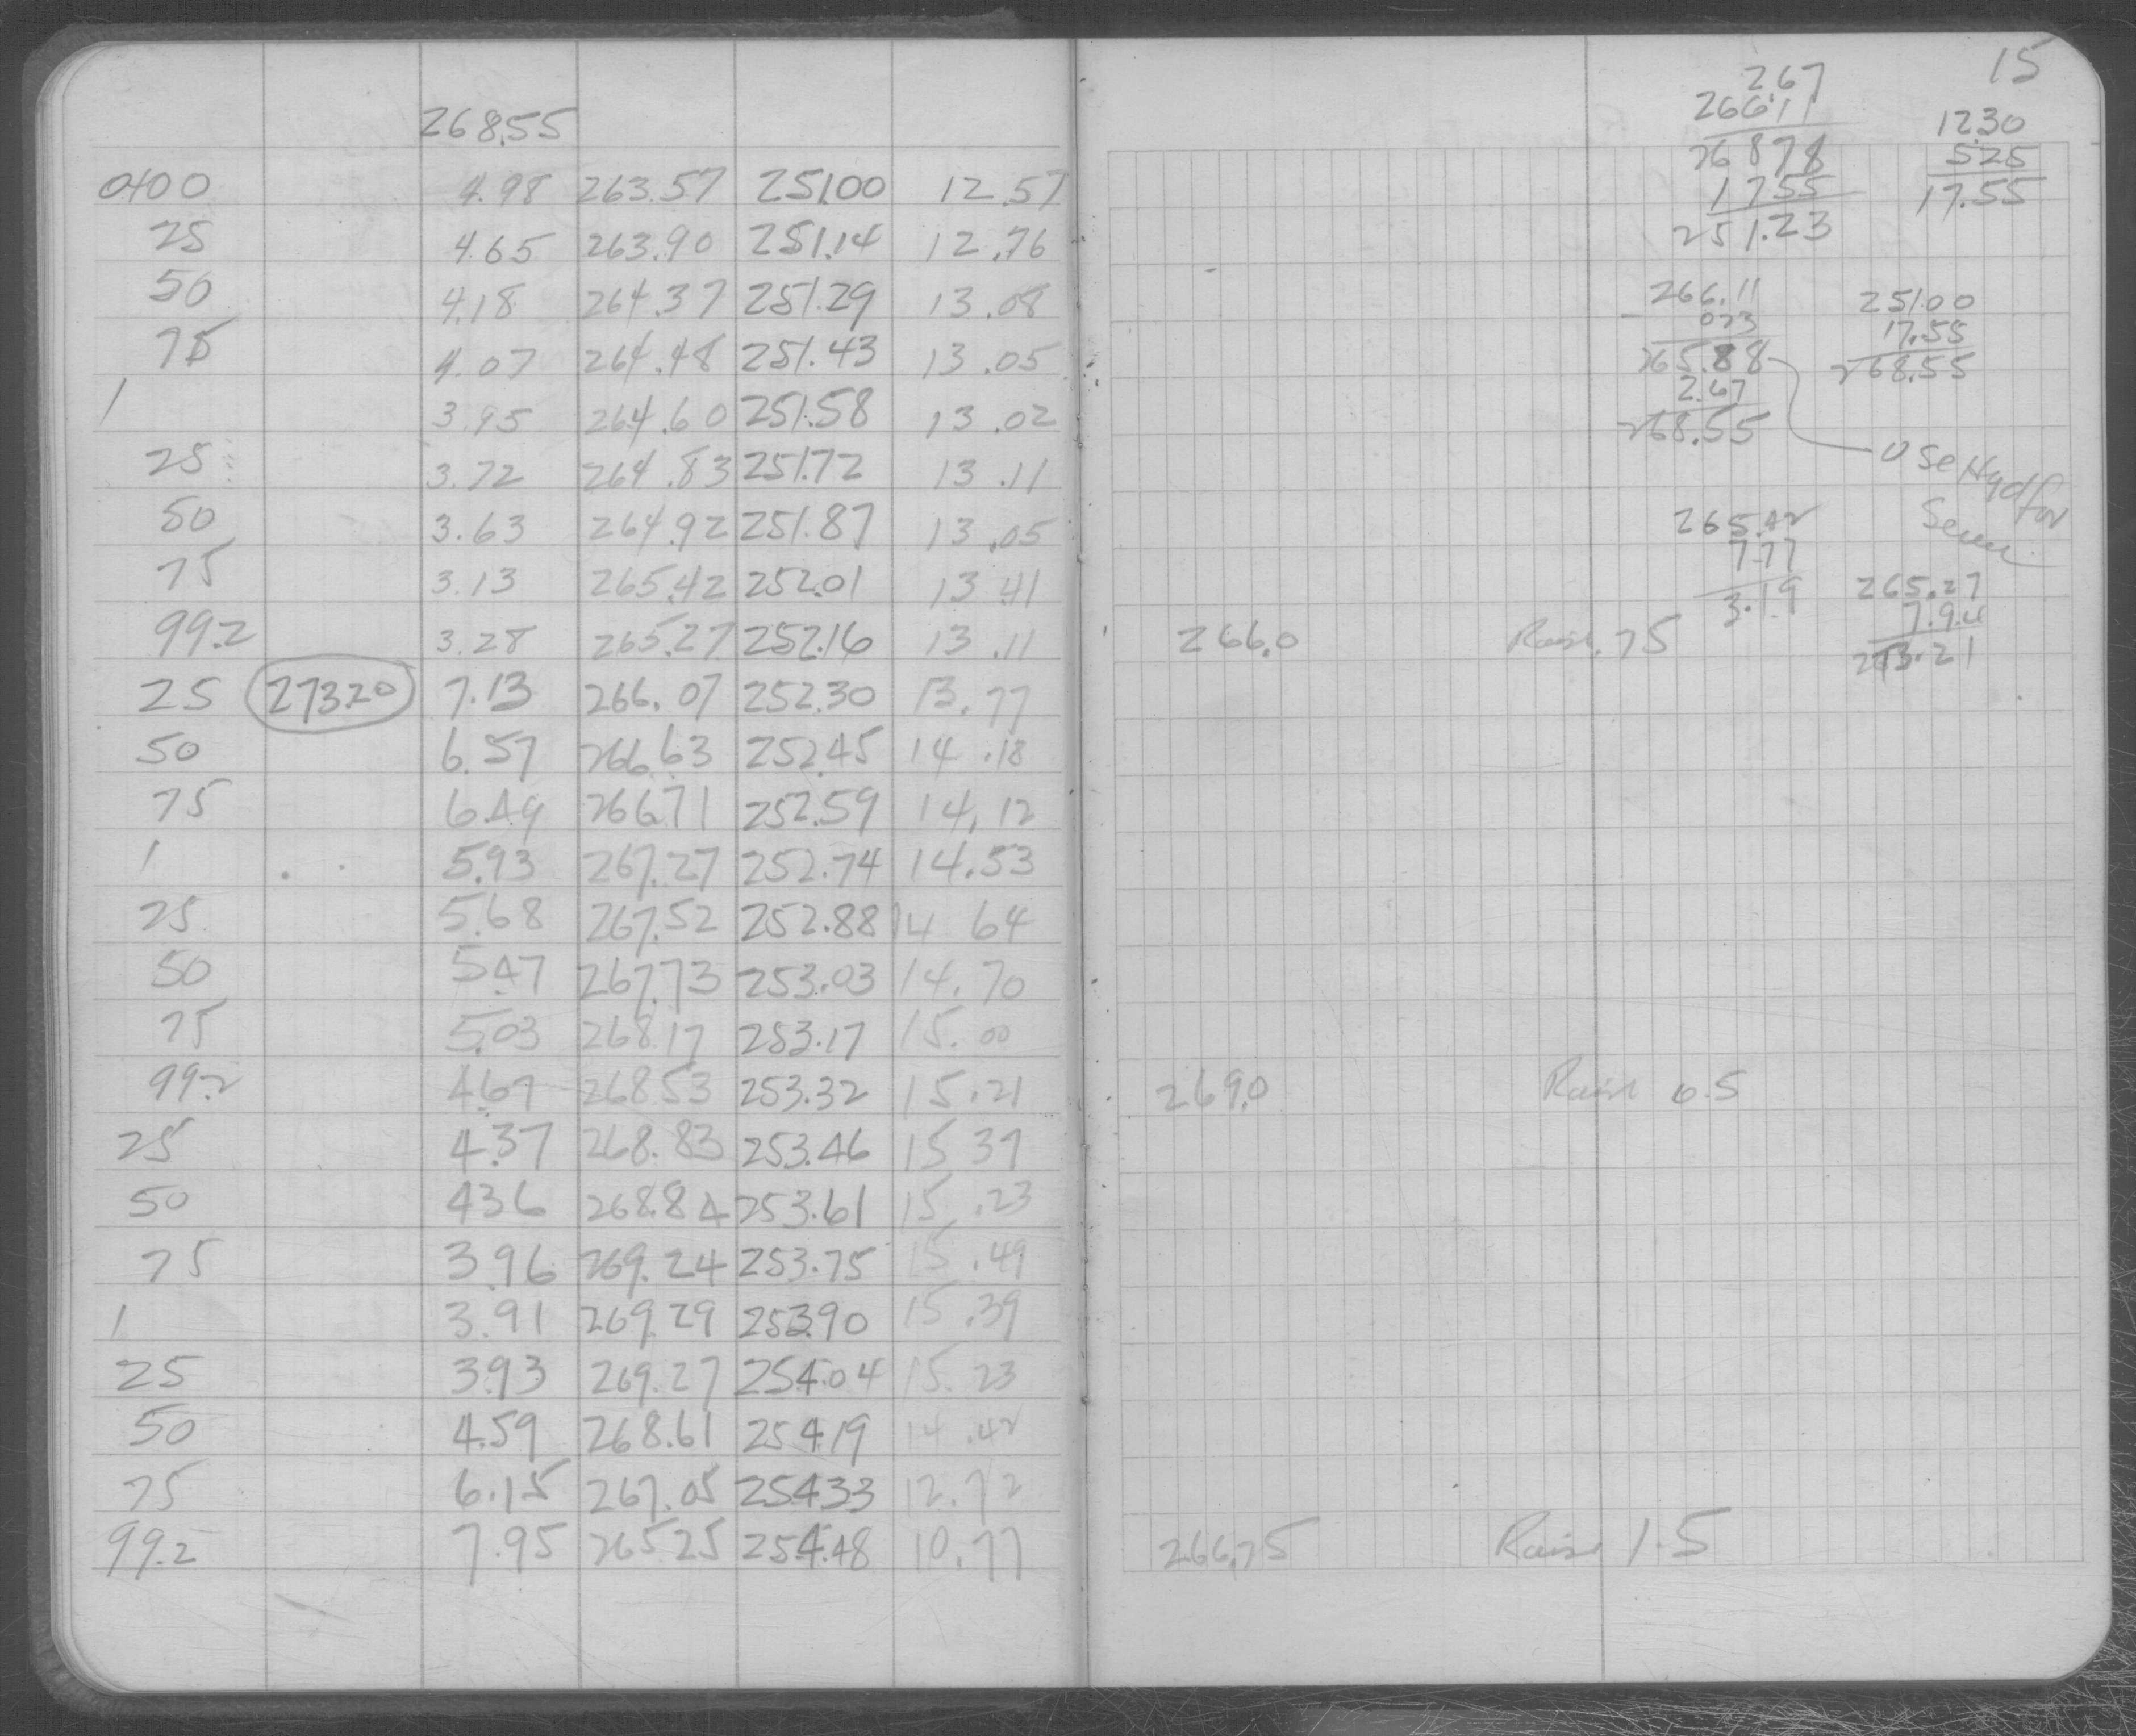 268.55
0+00 4.98 263.57 251.00 12.57
25 4.65 263.90 251.14 12.76
50 4.18 264.37 251.29 13.08
75 4.07 264.48 251.43 13.05
1 3.95 264.60 251.58 13.02
25 3.72 264.83 251.72 13.11
50 3.63 264.92 251.87 13.05
75 3.13 265.42 252.01 13 41
99.2 3.28 265.27 252.16 13.11
25 273.20 7.13 266.07 252.30 13.77
50 6.57 266.63 252.45 14.18
75 6.49 266.71 252.59 14.12
1 5.93 267.27 252.74 14.53
25 5.68 267.52 252.88 14 64
50 5.47 267.73 253.03 14.70
75 5.03 268.17 253.17 15.00
99.2 4.67 268.53 253.32 15.21
25 4.37 268.83 253.46 15 37
50 4.36 268.84 253.61 15.23
75 3.96 269.24 253.75 15.49
1 3.91 269.29 253.90 15.39
25 3.93 269.27 254.04 15.23
50 4.59 268.61 254.19 14.42
75 6.15 267.05 254.33 12.72
99.2 7.95 265.25 254.48 10.77
15
2.67
266.11
268 78
17 55
251.23
12.30
5.25
17.55
266.11
- 023
265.88
2.67
268.55
251.00
17.55
268.55
Use Hyd for
Sewer
265.42
7.77
3.19
265.27
7.94
273.21
266.0 Raise .75
269.0 Raise 0.5
266.75 Raise 1.5